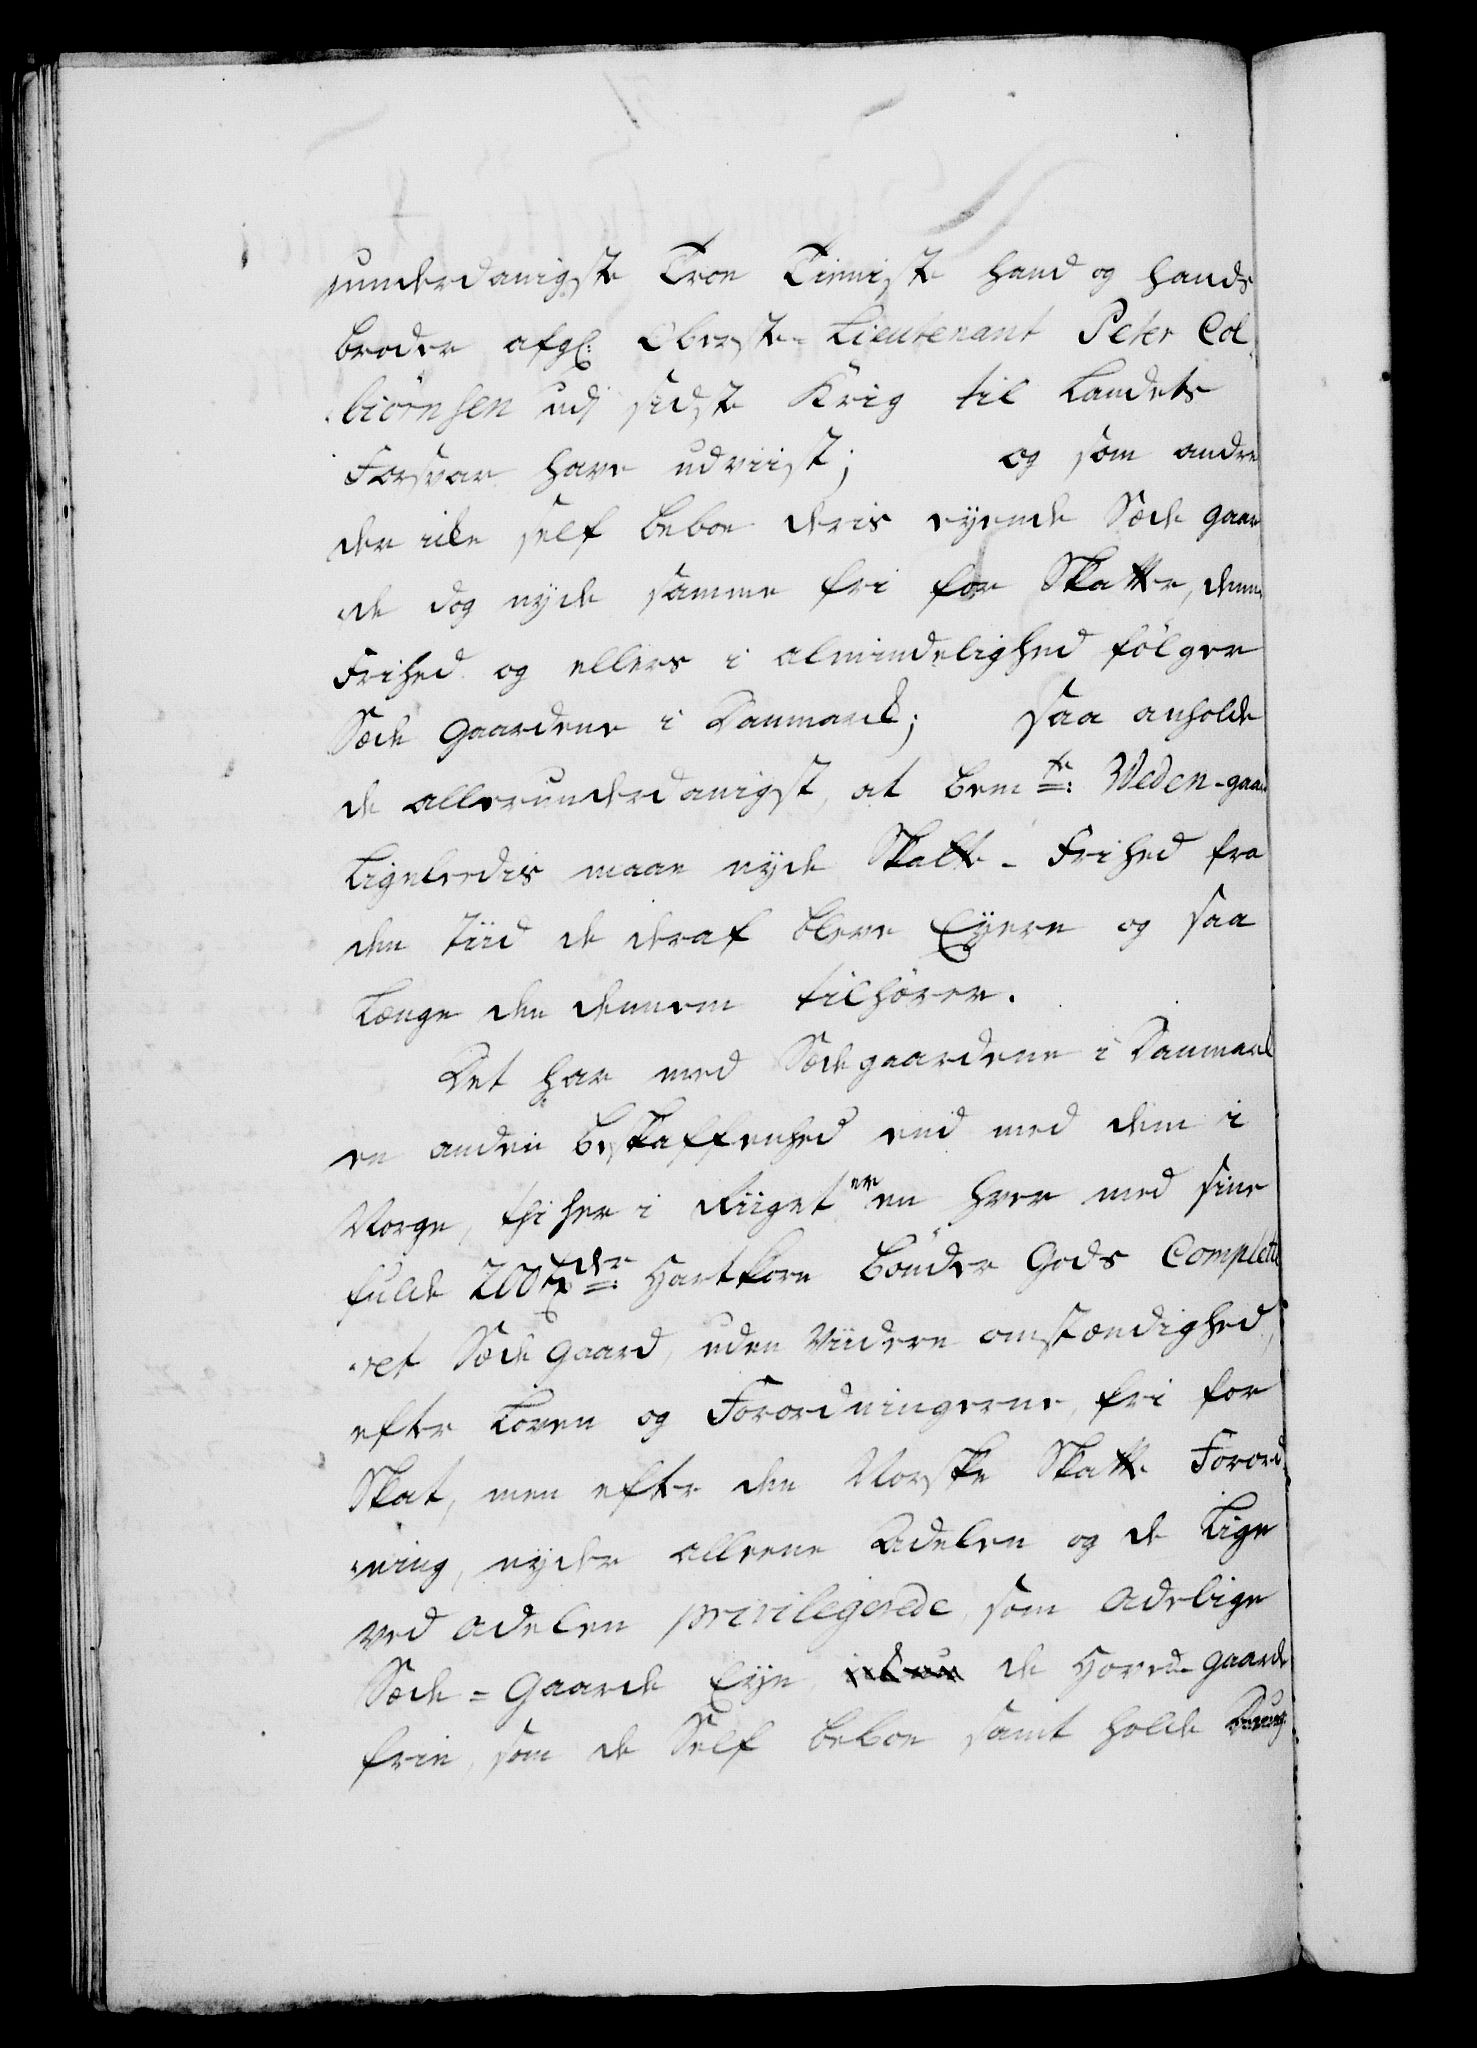 underdanigste Troe Tieniste hand og hands
broder afg: Oberste-Lieutenant Peter Col
biörnsen udi sidste Krig til Landets
Forsvar have udviist; og som andre
der icke self beboe deris eyende Sæde gaar
de dog nyde samme fri for Skatter, denne
Frihed og ellers i almindelighed fölger
Sæde Gaardene i Danmarck; saa anholde
de allerunderdanigst, at bemte: Weden-gaar
Ligeledis maae nyde Skatte-Frihed fra
den Tiid de deraf bleve Eyere og saa
Længe den dennem tilhörer.
Det har med Sædegaardene i Danmarck
en anden beskaffenhed end med dem i
Norge, thi her i Riiget er en hver med sine
fulde 200 Tdr: Hartkorn bönder Gods Complette
ret Sæde Gaard, uden Viidere omstændighed,
efter Loven og Forordningerne, fri for
Skat, men efter den Norske Skatte Forord
ning, nyder alleene Adelen og de Lige
ved Adelen privilegerede, som Adelige
Sæde-Gaarde Eye, de Hoved-gaarde
frie, som de Self beboe samt holde